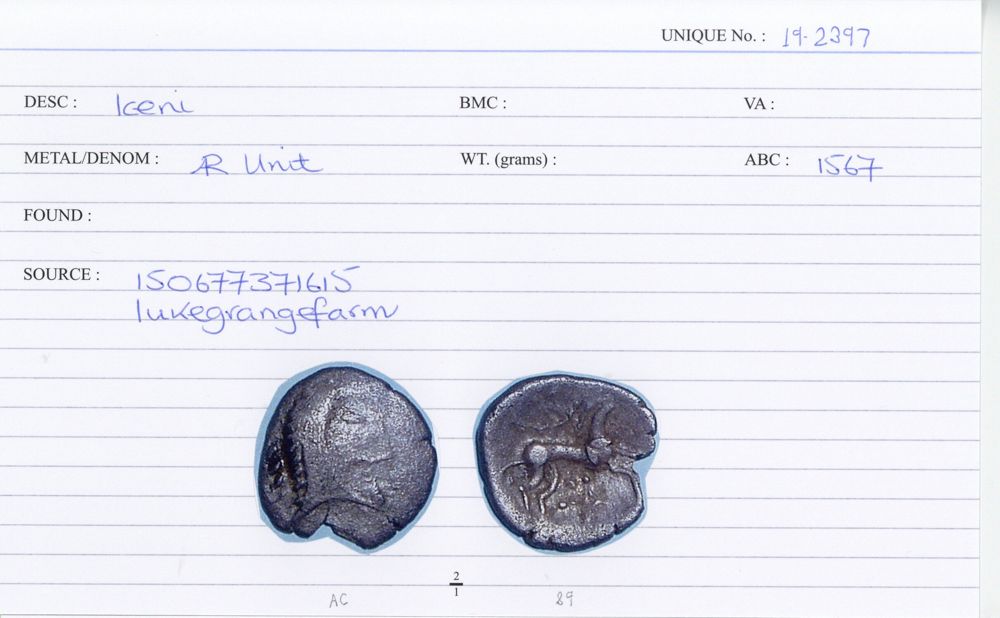 UNIQUE No. : 19-2397
DESC : Iceni BMC : VA :
METAL/DENOM : AR Unit WT. (grams) : ABC : 1567
FOUND :
SOURCE : 150677371615
lukegrangefarm
2
1
AC 89